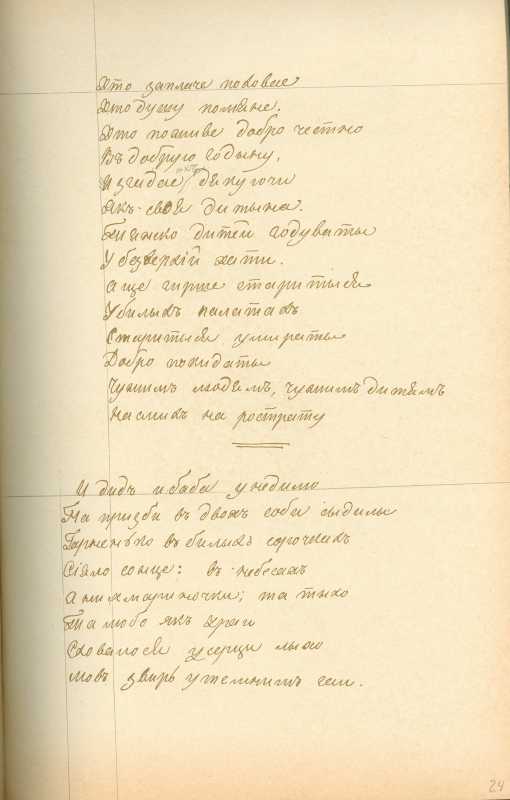 Хто заплаче поховае
Хто душу помяне.
Хто пожыве добро честно
Въ добрую годыну,
И згадае дякуючи
Якъ своя дитына.
Тяжко дитей годуваты
У безверхій хати.
а ще гирше старитыся
У билыхъ палатахъ
Старитыся умираты
Добро покидаты
Чужимъ людямъ, чужимъ дитямъ
На смихъ на розтрату
И дидъ и баба у недилю
На призби въ двохъ соби сыдилы
Гарненько въ билыхъ сорочкахъ
Сіяло сонце: въ небесахъ
а ни хмариночки; та тыхо
Та любо якъ у раи
Сховалося у серци лыхо
мовъ звирь у темнимъ гаи.
24